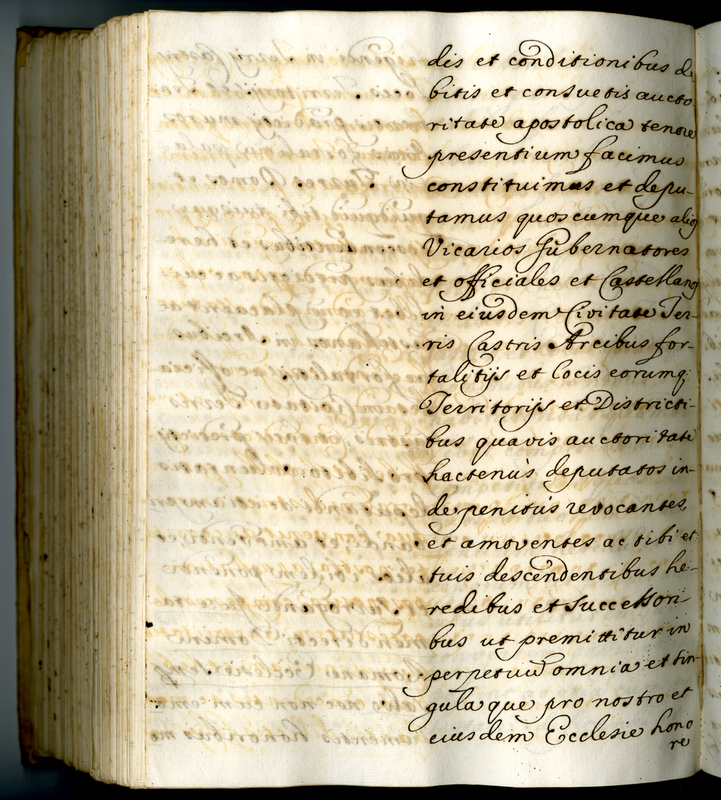 dis et conditionibus de
bitis et consuetis aucto
ritate apostolica tenore
presentium facimus
constituimus et depu-
tamus quoscumque alios
Vicarios Gubernatores
et officiales et Castellanos
in eiusdem Civitate Ter-
ris Castris Arcibus for-
talitijs et locis eorumq;
Territorijs et Districti-
bus quavis auctoritate
hactenùs deputatos in-
de penitùs revocantes,
et amoventes ac tibi et
tuis descendentibus he-
redibus et successori-
bus ut premittitur in
perpetuũ omnia et sin
gula que pro nostro et
eiusdem Ecclesie hono
re